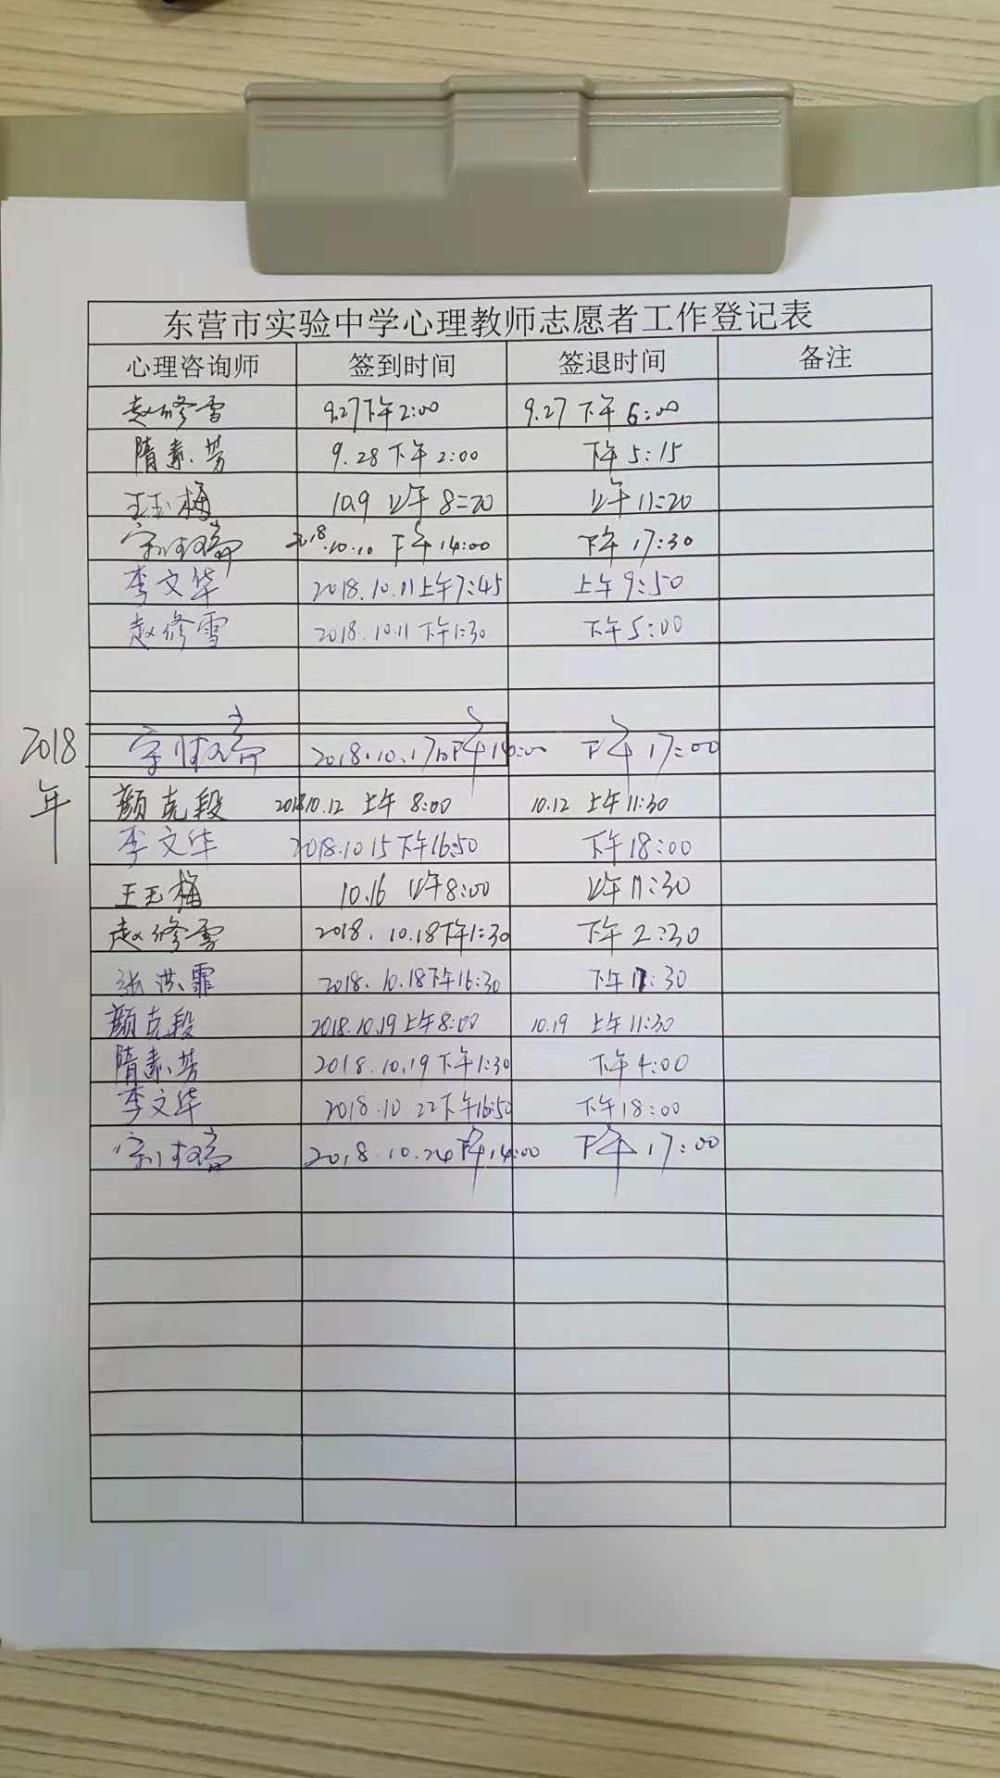 东营市实验中学心理教师志愿者工作登记表
心理咨询师 签到时间 签退时间 备注
赵修雪 9.27下午2:00 9.27 下午 6:00
隋素芳 9.28 下午 2:00 下午 5:15
王玉梅 10.9 上午 8:20 上午 11:20
2018.10.10 下午 14:00 下午 17:30
李文华 2018.10.11上午7:45 上午 9:50
赵修雪 2018.10.11 下午1:30 下午5:00
2018年
2018.10.17 下午14:00 下午 17:00
颜克段 2018.10.12 上午 8:00 10.12 上午11:30
李文华 2018.10 15下午16:50 下午18:00
王玉梅 10.16 上午8:00 上午 11:30
赵修雪 2018.10.18下午1:30 下午 2:30
张洪霏 2018.10.18下午16:30 下午 17:30
颜克段 2018.10.19上午8:00 10.19 上午11:30
隋素芳 2018.10.19下午1:30 下午4:00
李文华 2018.10 22下午16:50 下午18:00
2018.10.24下午14:00 下午 17:00